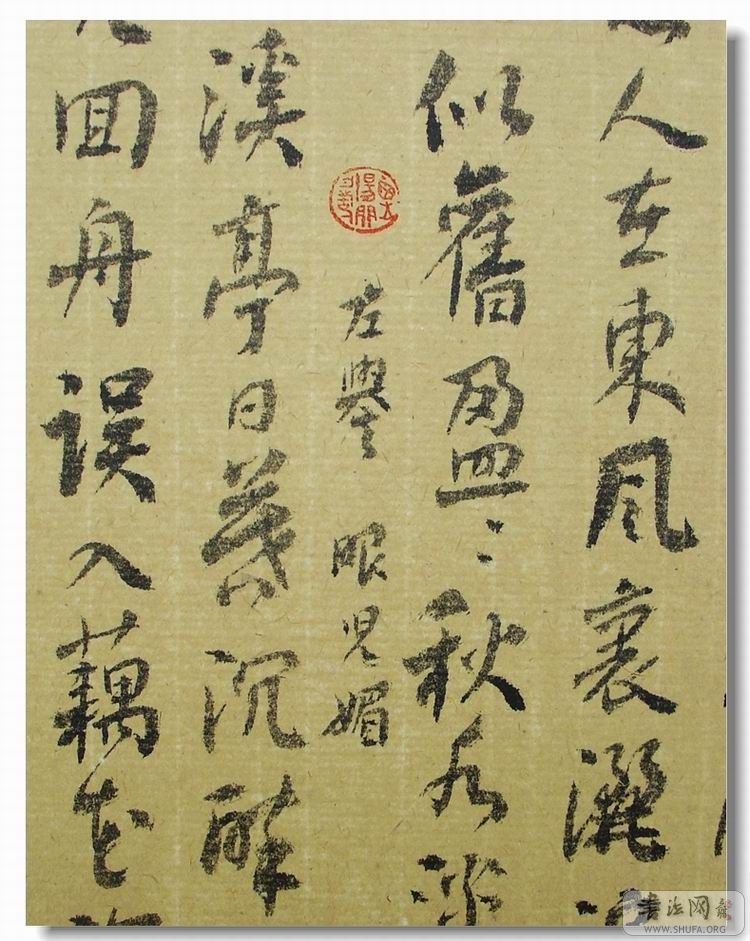 人在東風裏灑
似舊盈〻秋水淡
左譽 眼兒媚
溪亭日暮沉醉
回舟误入藕花
書法网
WWW.SHUFA.ORG